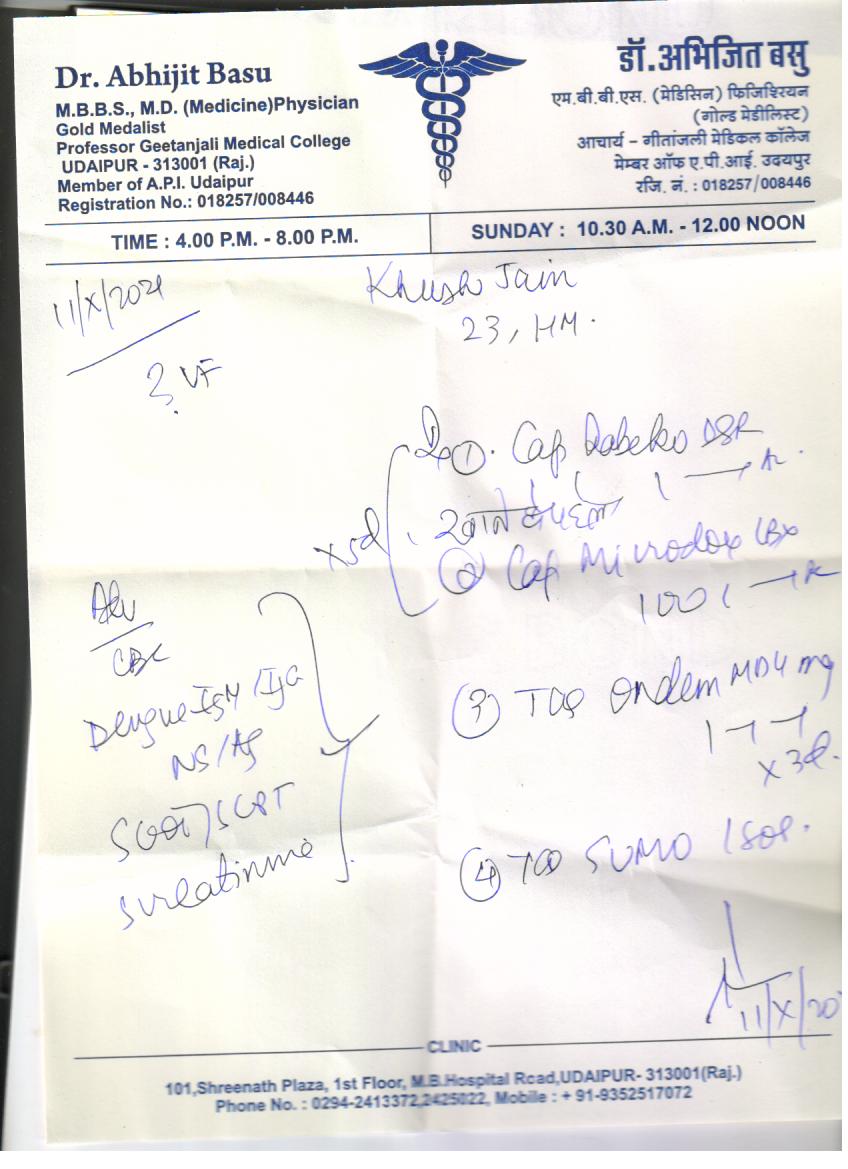 Dr. Abhijit Basu
M.B.B.S., M.D. (Medicine)Physician
Gold Medalist
Professor Geetanjali Medical College
UDAIPUR - 313001 (Raj.)
Member of A.P.I. Udaipur
Registration No.: 018257/008446
डॉ.अभिजित बसु
एम.बी.बी.एस. (मेडिसिन) फिजिश्यिन
(गोल्ड मेडीलिस्ट)
आचार्य - गीतांजली मेडिकल कॉलेज
मेम्बर ऑफ ए.पी.आई. उदयपुर
रजि. नं. : 018257/008446
TIME : 4.00 P.M. - 8.00 P.M.
SUNDAY : 10.30 A.M. - 12.00 NOON
11/X/2021
Khush Jain
23, HM.
? VF
① Cap Rabeko DSR
1
② Cap Microdox LBX
100 1
x5d
③ Tab Ondem MD 4 mg
1-1-1
x 3d.
④ Tab SUMO 1 SOS.
Adv
CBC
Dengue IgM/IgG
NS/Ag
SGOT/SGPT
S creatinine
11/X/20
CLINIC
101,Shreenath Plaza, 1st Floor, M.B.Hospital Road,UDAIPUR- 313001(Raj.)
Phone No. : 0294-2413372,2425022, Mobile : + 91-9352517072